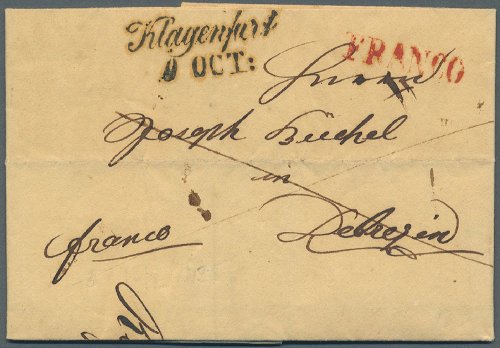 Klagenfurt
9 OCT:
FRANCO
Herrn
Joseph Büchel
in
Debrezin
franco